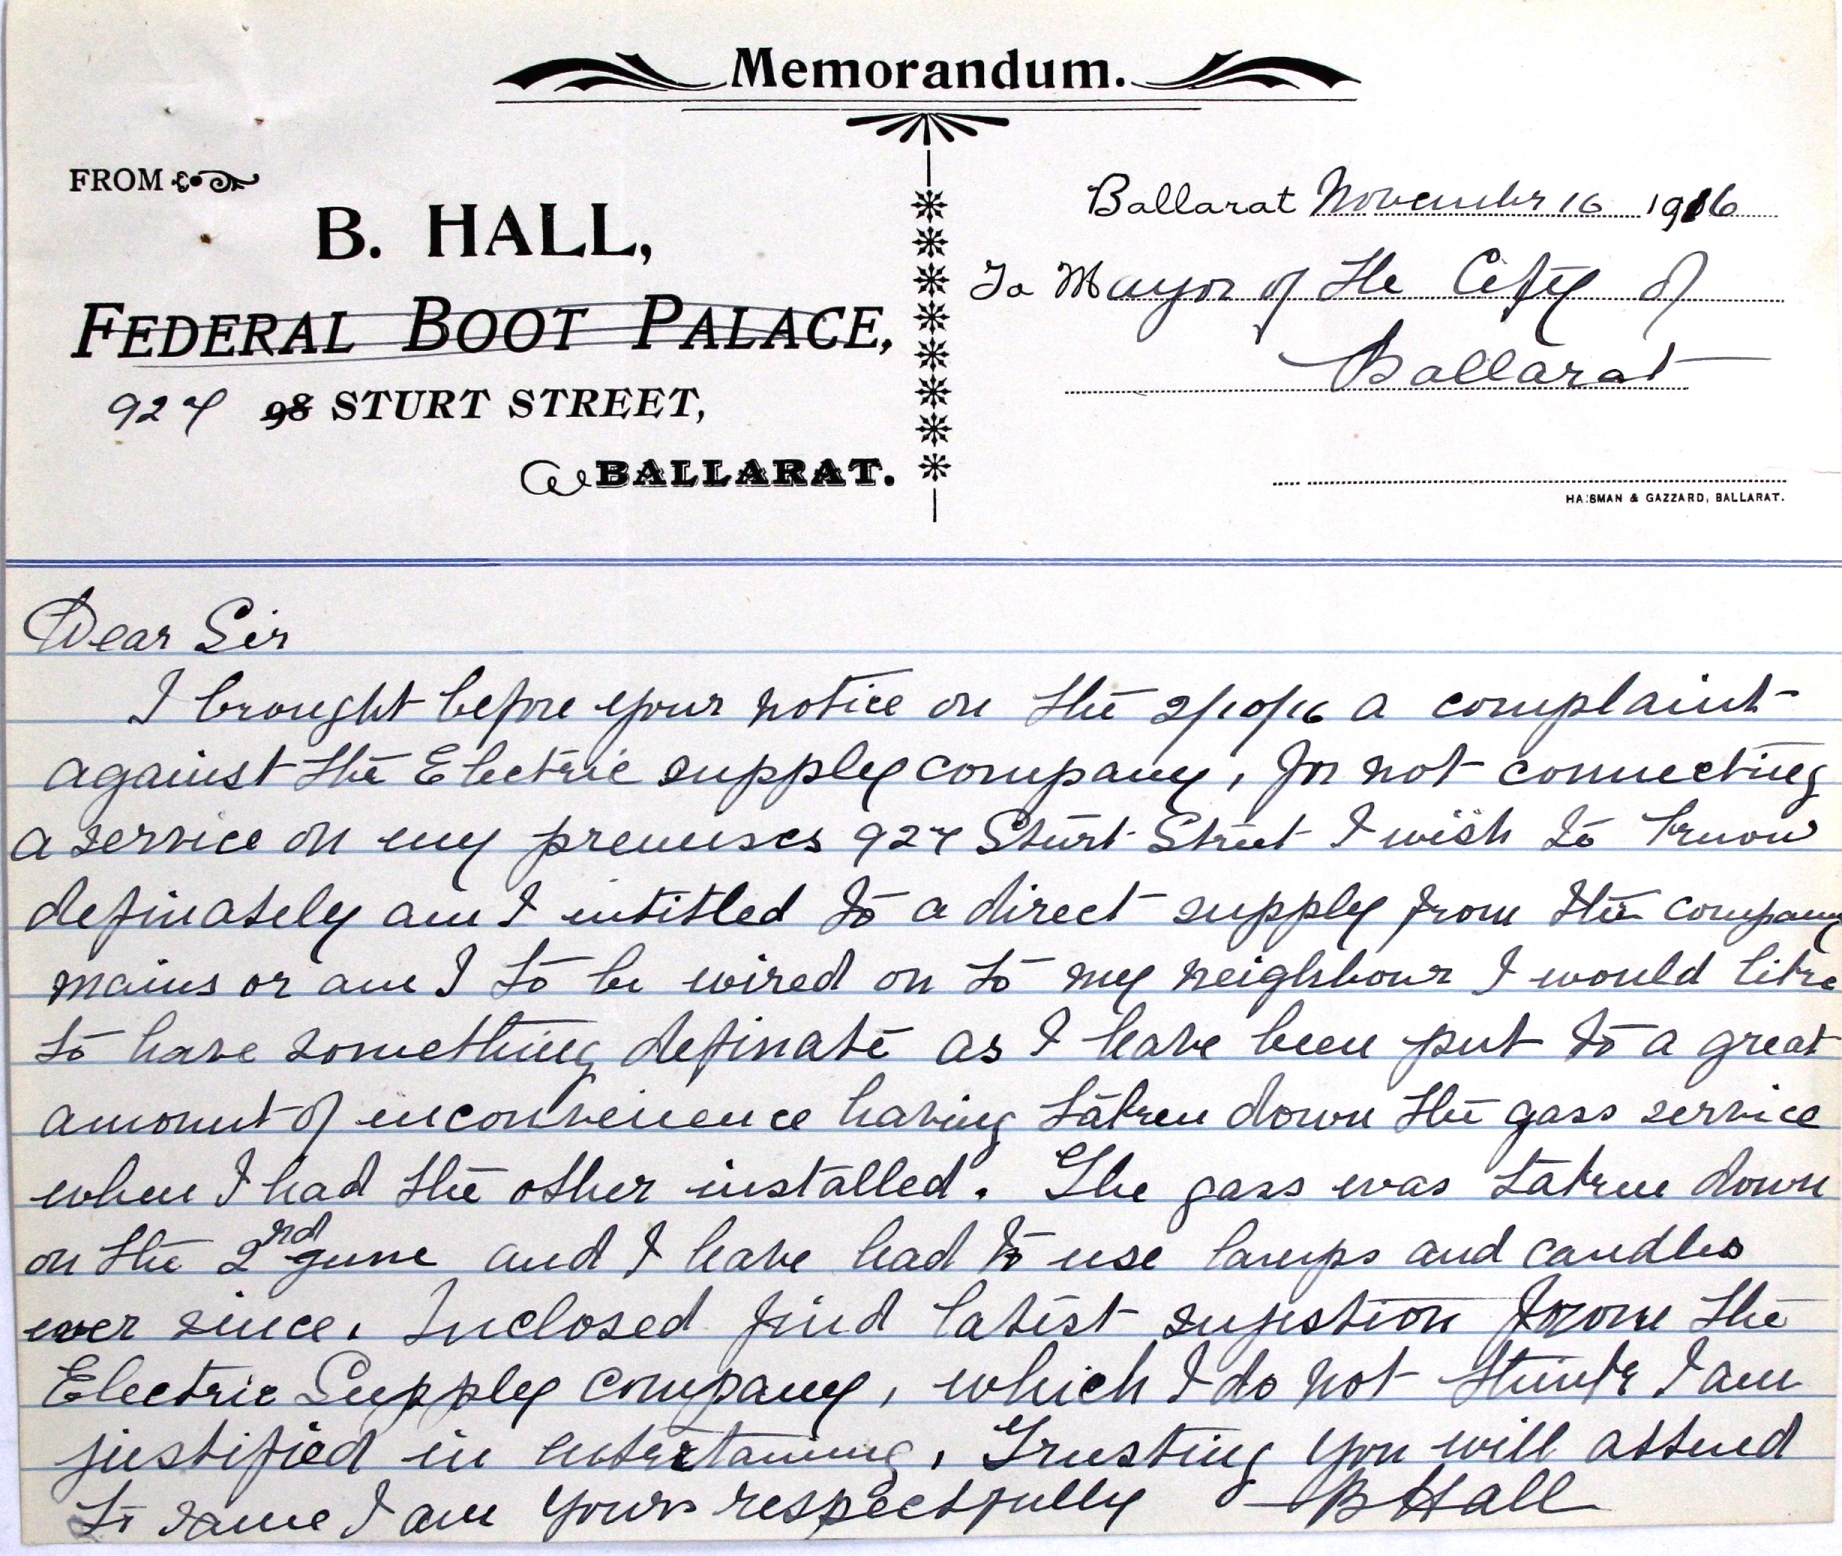 Memorandum.
FROM
B. HALL,
FEDERAL BOOT PALACE,
927 98 STURT STREET,
BALLARAT.
Ballarat November 16 1916
To Mayor of the City of
Ballarat
HAISMAN & GAZZARD, BALLARAT.
Dear Sir
I brought before your notice on the 2/10/16 a complaint
against the Electric supply company, for not connecting
a service on my premises 927 Sturt Street I wish to know
definately am I intitled to a direct supply from the company
mains or am I to be wired on to my neighbour I would like
to have something definate as I have been put to a great
amount of inconvenience having taken down the gass service
when I had the other installed. The gass was taken down
on the 2rd June and I have had to use lamps and candles
ever since. Inclosed find latest sujestion from the
Electric Supply company, which I do not think I am
justified in entertaining. Trusting you will attend
to same I am yours respectfully B Hall